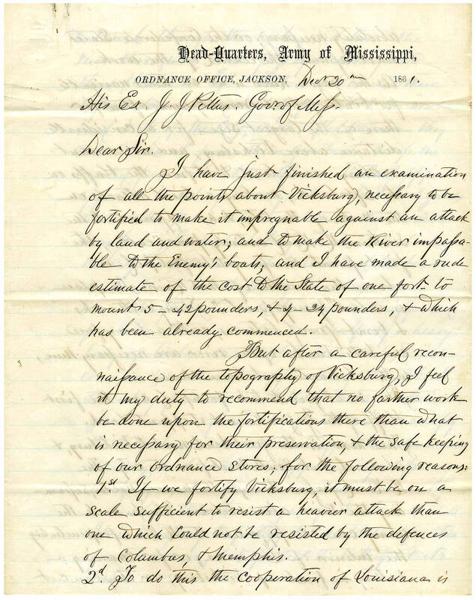 Head-Quarters, Army of Mississippi,
ORDNANCE OFFICE, JACKSON, Decr 20th 1861.
His Ex. J. J. Pettus. Gov. of Miss.
Dear Sir.
I have just finished an examination
of all the points about Vicksburg, necessary to be
fortified to make it impregnable against an attack
by land and water; and to make the River impassa-
ble to the Enemy's boats; and I have made a rude
estimate of the cost to the State of one fort to
mount 5 - 42 pounders, & 4 - 24 pounders, & which
has been already commenced.
But after a careful recon-
naissance of the topography of Vicksburg, I feel
it my duty to recommend that no farther work
be done upon the fortifications there than what
is necessary for their preservation, & the safe keeping
of our ordnance stores; for the following reasons:
1st. If we fortify Vicksburg, it must be on a
scale sufficient to resist a heavier attack than
one which could not be resisted by the defences
of Columbus, & Memphis.
2d. To do this the cooperation of Louisiana is